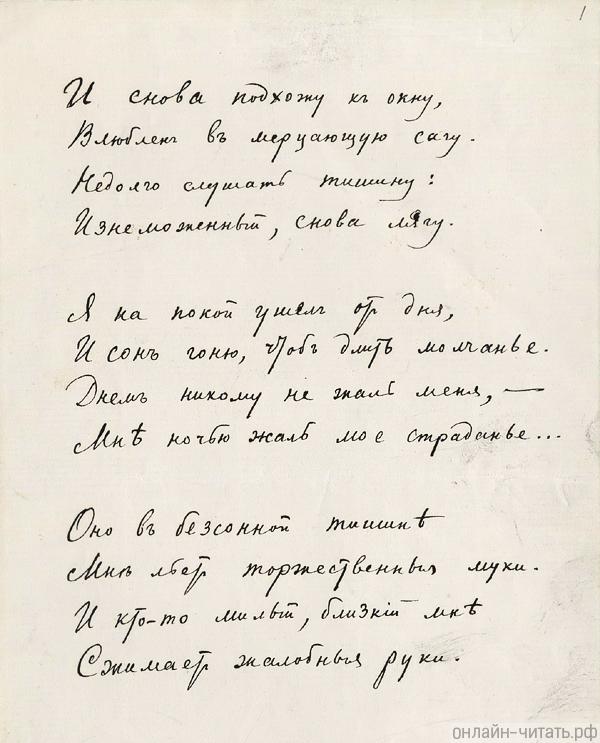 1
И снова подхожу къ окну,
Влюбленъ въ мерцающую сагу.
Недолго слушать тишину:
Изнеможенный, снова лягу.
Я на покой ушелъ отъ дня,
И сонъ гоню, чтобъ длить молчанье.
Днемъ никому не жаль меня, —
Мнѣ ночью жаль мое страданье...
Оно въ безсонной тишинѣ
Мнѣ льетъ торжественныя муки.
И кто-то милый, близкій мнѣ
Сжимаетъ жалобныя руки.
онлайн-читать.рф